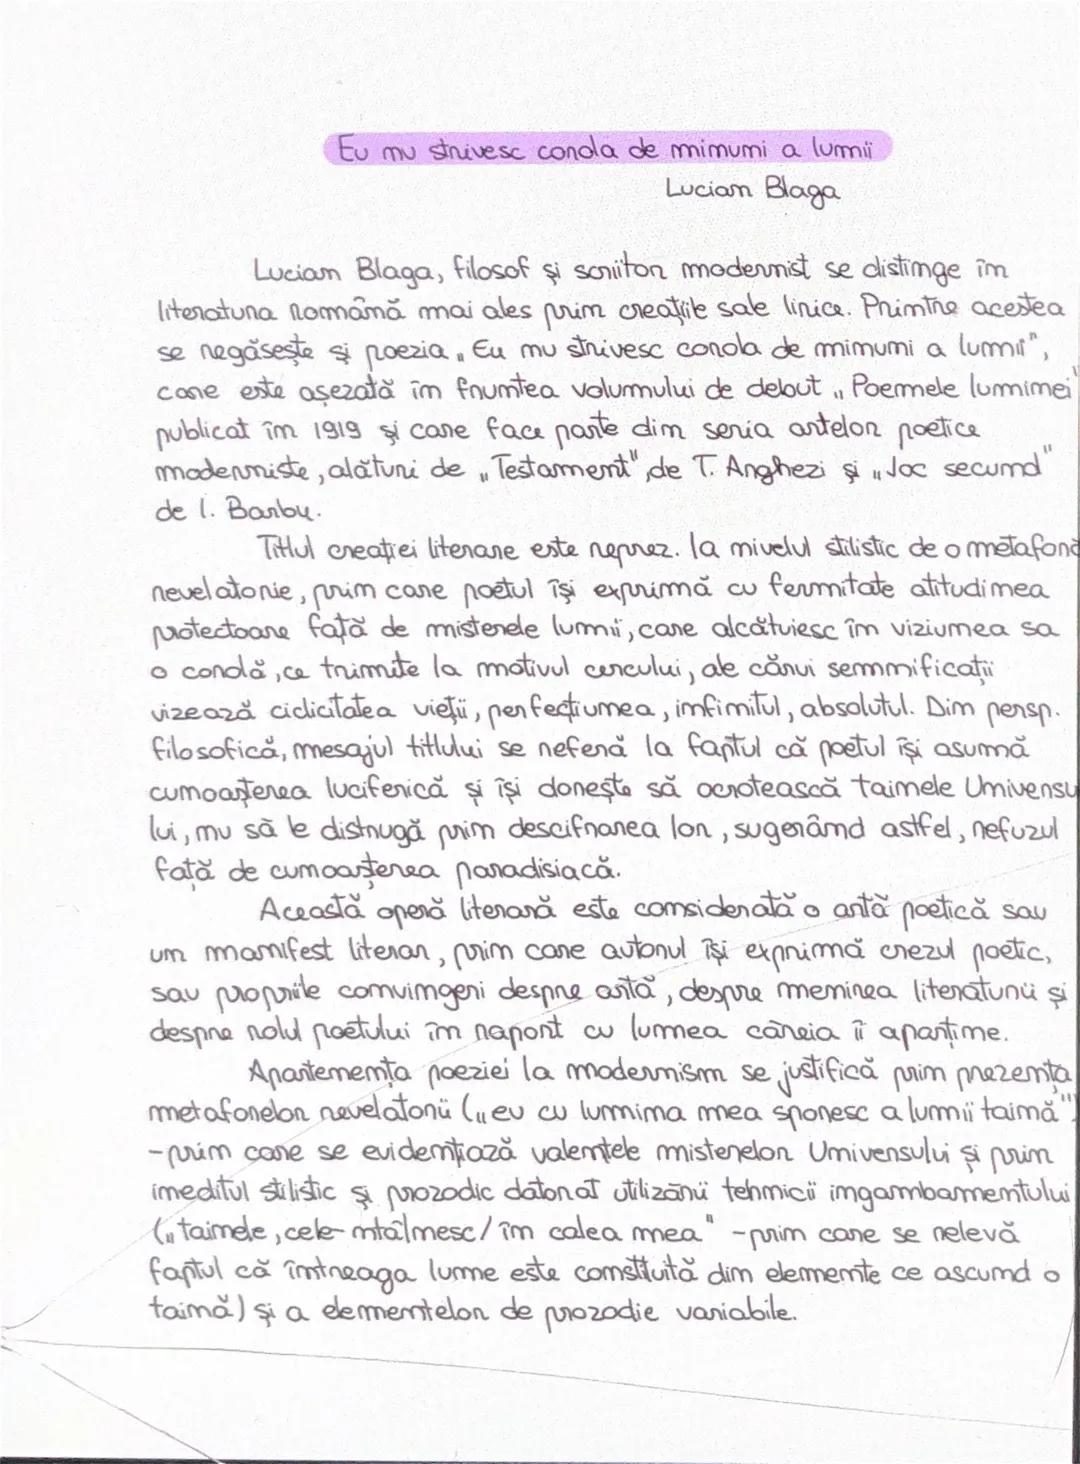 Eu nu strivesc corola de minuni a lumii
Lucian Blaga
Lucian Blaga, filosof și scriitor modernist se distinge în
literatura română mai ales prin creațiile sale lirice. Printre acestea
se regăsește și poezia „Eu nu strivesc corola de minuni a lumii",
care este așezată în fruntea volumului de debut „Poemele luminei"
publicat în 1919 și care face parte din seria artelor poetice
moderniste, alături de „Testament", de T. Arghezi și „Joc secund"
de I. Barbu.
Titlul creației literare este reprez. la nivelul stilistic de o metaforă
revelatorie, prin care poetul își exprimă cu fermitate atitudinea
protectoare față de misterele lumii, care alcătuiesc în viziunea sa
o corolă, ce trimite la motivul cercului, ale cărui semnificații
vizează ciclicitatea vieții, perfecțiunea, infinitul, absolutul. Din persp.
filosofică, mesajul titlului se referă la faptul că poetul își asumă
cunoașterea luciferică și își dorește să ocrotească tainele Universu
lui, nu să le distrugă prin descifrarea lor, sugerând astfel, refuzul
față de cunoașterea paradisiacă.
Această operă literară este considerată o artă poetică sau
un manifest literar, prin care autorul își exprimă crezul poetic,
sau propriile convingeri despre artă, despre menirea literaturii și
despre rolul poetului în raport cu lumea căreia îi aparține.
Apartenența poeziei la modernism se justifică prin prezența
metaforelor revelatorii („eu cu lumina mea sporesc a lumii taină"
-prin care se evidențiază valențele misterelor Universului și prin
ineditul stilistic și prozodic datorat utilizării tehnicii ingambamentului
(„tainele, cele-ntâlnesc/ în calea mea" -prin care se relevă
faptul că întreaga lume este constituită din elemente ce ascund o
taină) și a elementelor de prozodie variabile.